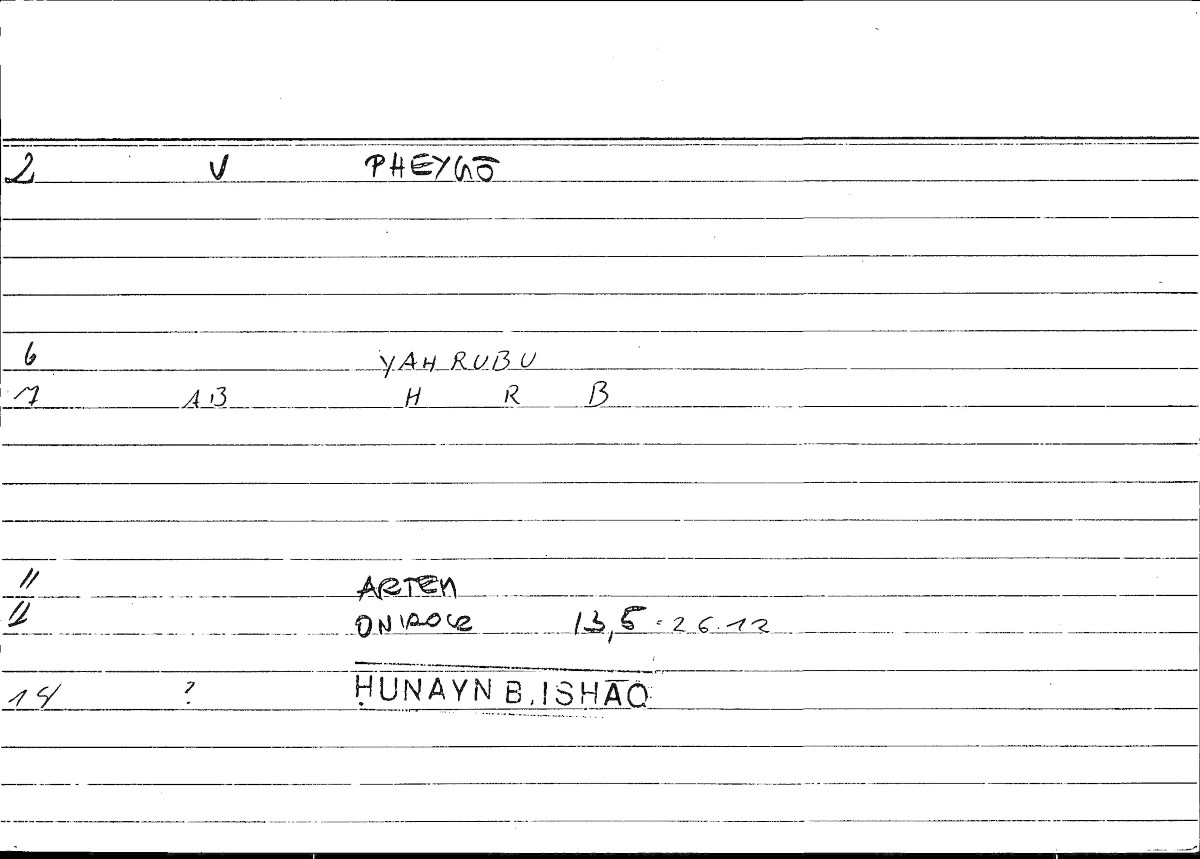 2 V PHEYGŌ
6 YAHRUBU
7 AB H R B
11 ARTEM
12 ONIROCR 13,5 = 26.12
14 ? ḤUNAYN B. ISHĀQ